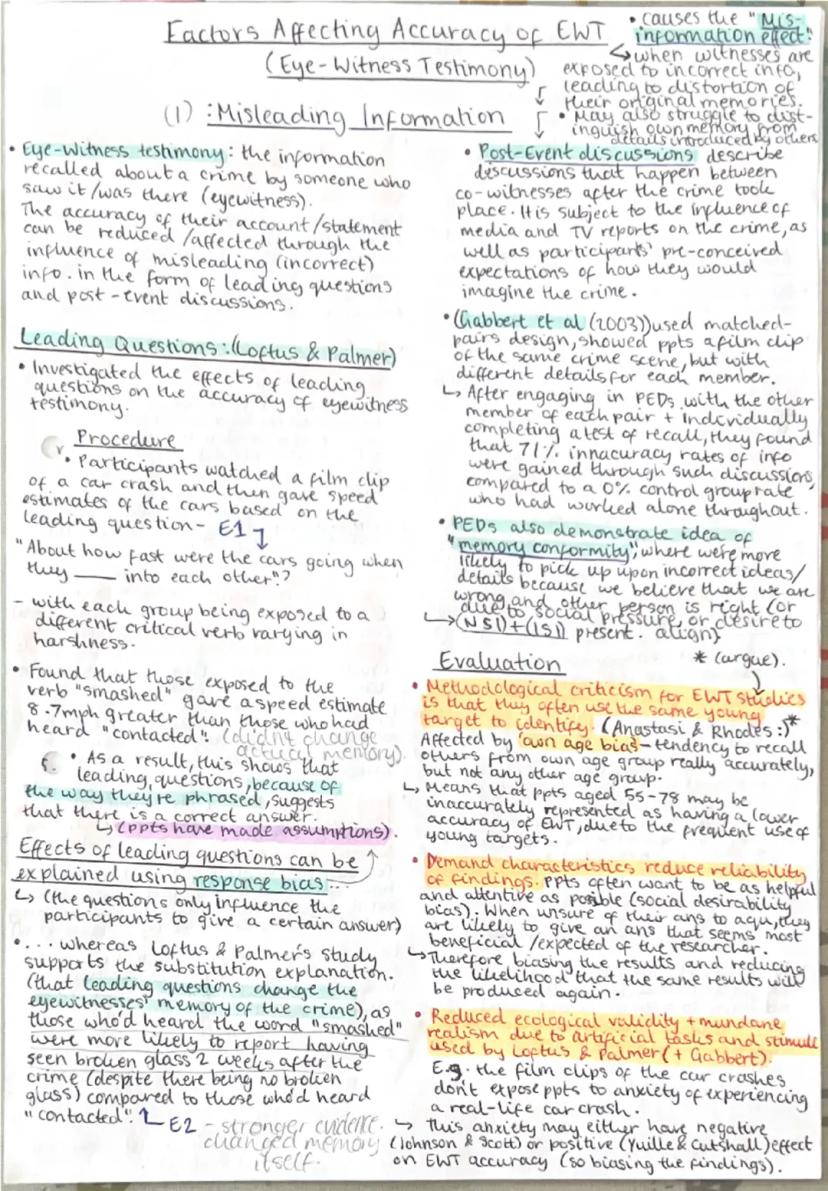 Factors Affecting Accuracy of EWT
(Eye-Witness Testimony)
• causes the "Mis-
information effect":
↳ when witnesses are
exposed to incorrect info,
leading to distortion of
their original memories.
• May also struggle to dist-
inguish own memory from
details introduced by others
(1) : Misleading Information
• Eye-Witness testimony: the information
recalled about a crime by someone who
saw it/was there (eyewitness).
The accuracy of their account/statement
can be reduced/affected through the
influence of misleading (incorrect)
info. in the form of leading questions
and post-event discussions.
Leading Questions: (Loftus & Palmer)
• Investigated the effects of leading
questions on the accuracy of eyewitness
testimony.
Procedure
• Participants watched a film clip
of a car crash and then gave speed
estimates of the cars based on the
leading question- E1
"About how fast were the cars going when
they ___ into each other"?
- with each group being exposed to a
different critical verb varying in
harshness.
• Found that those exposed to the
verb "smashed" gave a speed estimate
8.7mph greater than those who had
heard "contacted". (didn't change
actual memory).
• As a result, this shows that
leading questions, because of
the way they're phrased, suggests
that there is a correct answer.
↳ (ppts have made assumptions).
Effects of leading questions can be
explained using response bias...
↳ (the questions only influence the
participants to give a certain answer)
•... whereas Loftus & Palmer's study
supports the substitution explanation.
(that leading questions change the
eyewitnesses' memory of the crime), as
those who'd heard the word "smashed"
were more likely to report having
seen broken glass 2 weeks after the
crime (despite there being no broken
glass) compared to those who'd heard
"contacted". E2 - stronger evidence.
changed memory
itself.
• Post-Event discussions describe
discussions that happen between
co-witnesses after the crime took
place. It is subject to the influence of
media and TV reports on the crime, as
well as participants' pre-conceived
expectations of how they would
imagine the crime.
• (Gabbert et al (2003)) used matched-
pairs design, showed ppts a film clip
of the same crime scene, but with
different details for each member.
↳ After engaging in PEDs with the other
member of each pair + individually
completing a test of recall, they found
that 71% innacuracy rates of info
were gained through such discussions,
compared to a 0% control group rate
who had worked alone throughout.
• PEDs also demonstrate idea of
"memory conformity", where we're more
likely to pick up upon incorrect ideas/
details because we believe that we are
wrong and other person is right (or
due to social pressure, or desire to
↳ (NSI)+(ISI) present. align)
Evaluation
* (argue).
• Methodological criticism for EWT studies
is that they often use the same young
target to identify. (Anastasi & Rhodes:)*
Affected by 'own age bias' - tendency to recall
others from own age group really accurately,
but not any other age group.
↳ Means that ppts aged 55-78 may be
inaccurately represented as having a lower
accuracy of EWT, due to the frequent use of
young targets.
• Demand characteristics reduce reliability
of findings. PPts often want to be as helpful
and attentive as posible (social desirability
bias). When unsure of their ans to a qu, they
are likely to give an ans that seems most
beneficial/expected of the researcher.
↳ Therefore biasing the results and reducing
the likelihood that the same results will
be produced again.
• Reduced ecological validity + mundane
realism due to artificial tasks and stimuli
used by Loftus & Palmer (+ Gabbert).
E.g. the film clips of the car crashes
don't expose ppts to anxiety of experiencing
a real-life car crash.
↳ This anxiety may either have negative
(Johnson & Scott) or positive (Yuille & Cutshall) effect
on EWT accuracy (so biasing the findings).